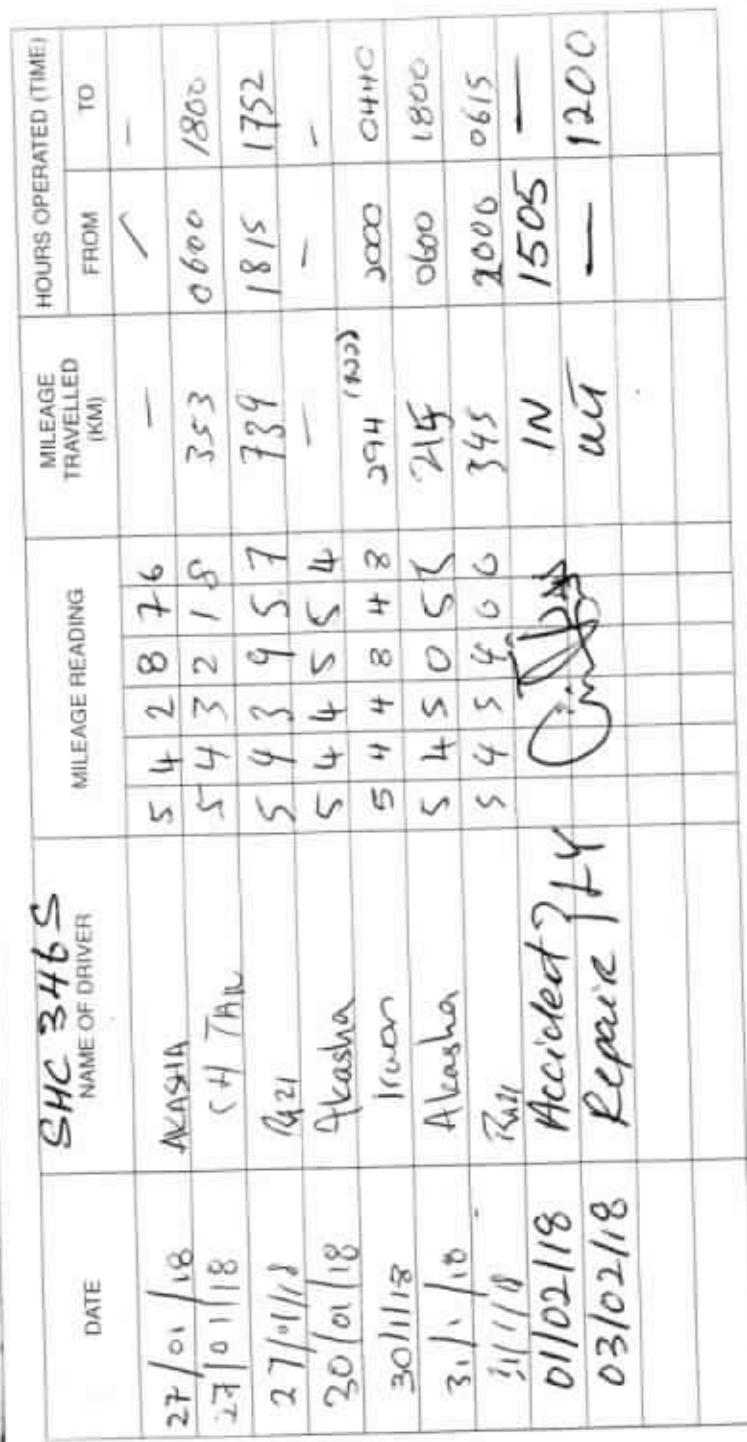 SHC 346S
DATE NAME OF DRIVER MILEAGE READING MILEAGE TRAVELLED (KM) HOURS OPERATED (TIME)
FROM TO
27/01/18 AKASHA 5 4 2 8 7 6 — / -
27/01/18 CH TAN 5 4 3 2 1 8 353 0600 1800
27/01/18 Razi 5 4 3 9 5 7 739 1815 1752
30/01/18 Akasha 5 4 4 5 5 4 — - -
30/1/18 Irwan 5 4 4 8 4 8 294 2000 0440
31/1/18 Akasha 5 4 5 0 5 5 0600 1800
31/1/18 Razi 5 4 5 4 0 0 345 2000 0615
01/02/18 Accident } LY IN 1505 —
03/02/18 Repair OUT — 1200